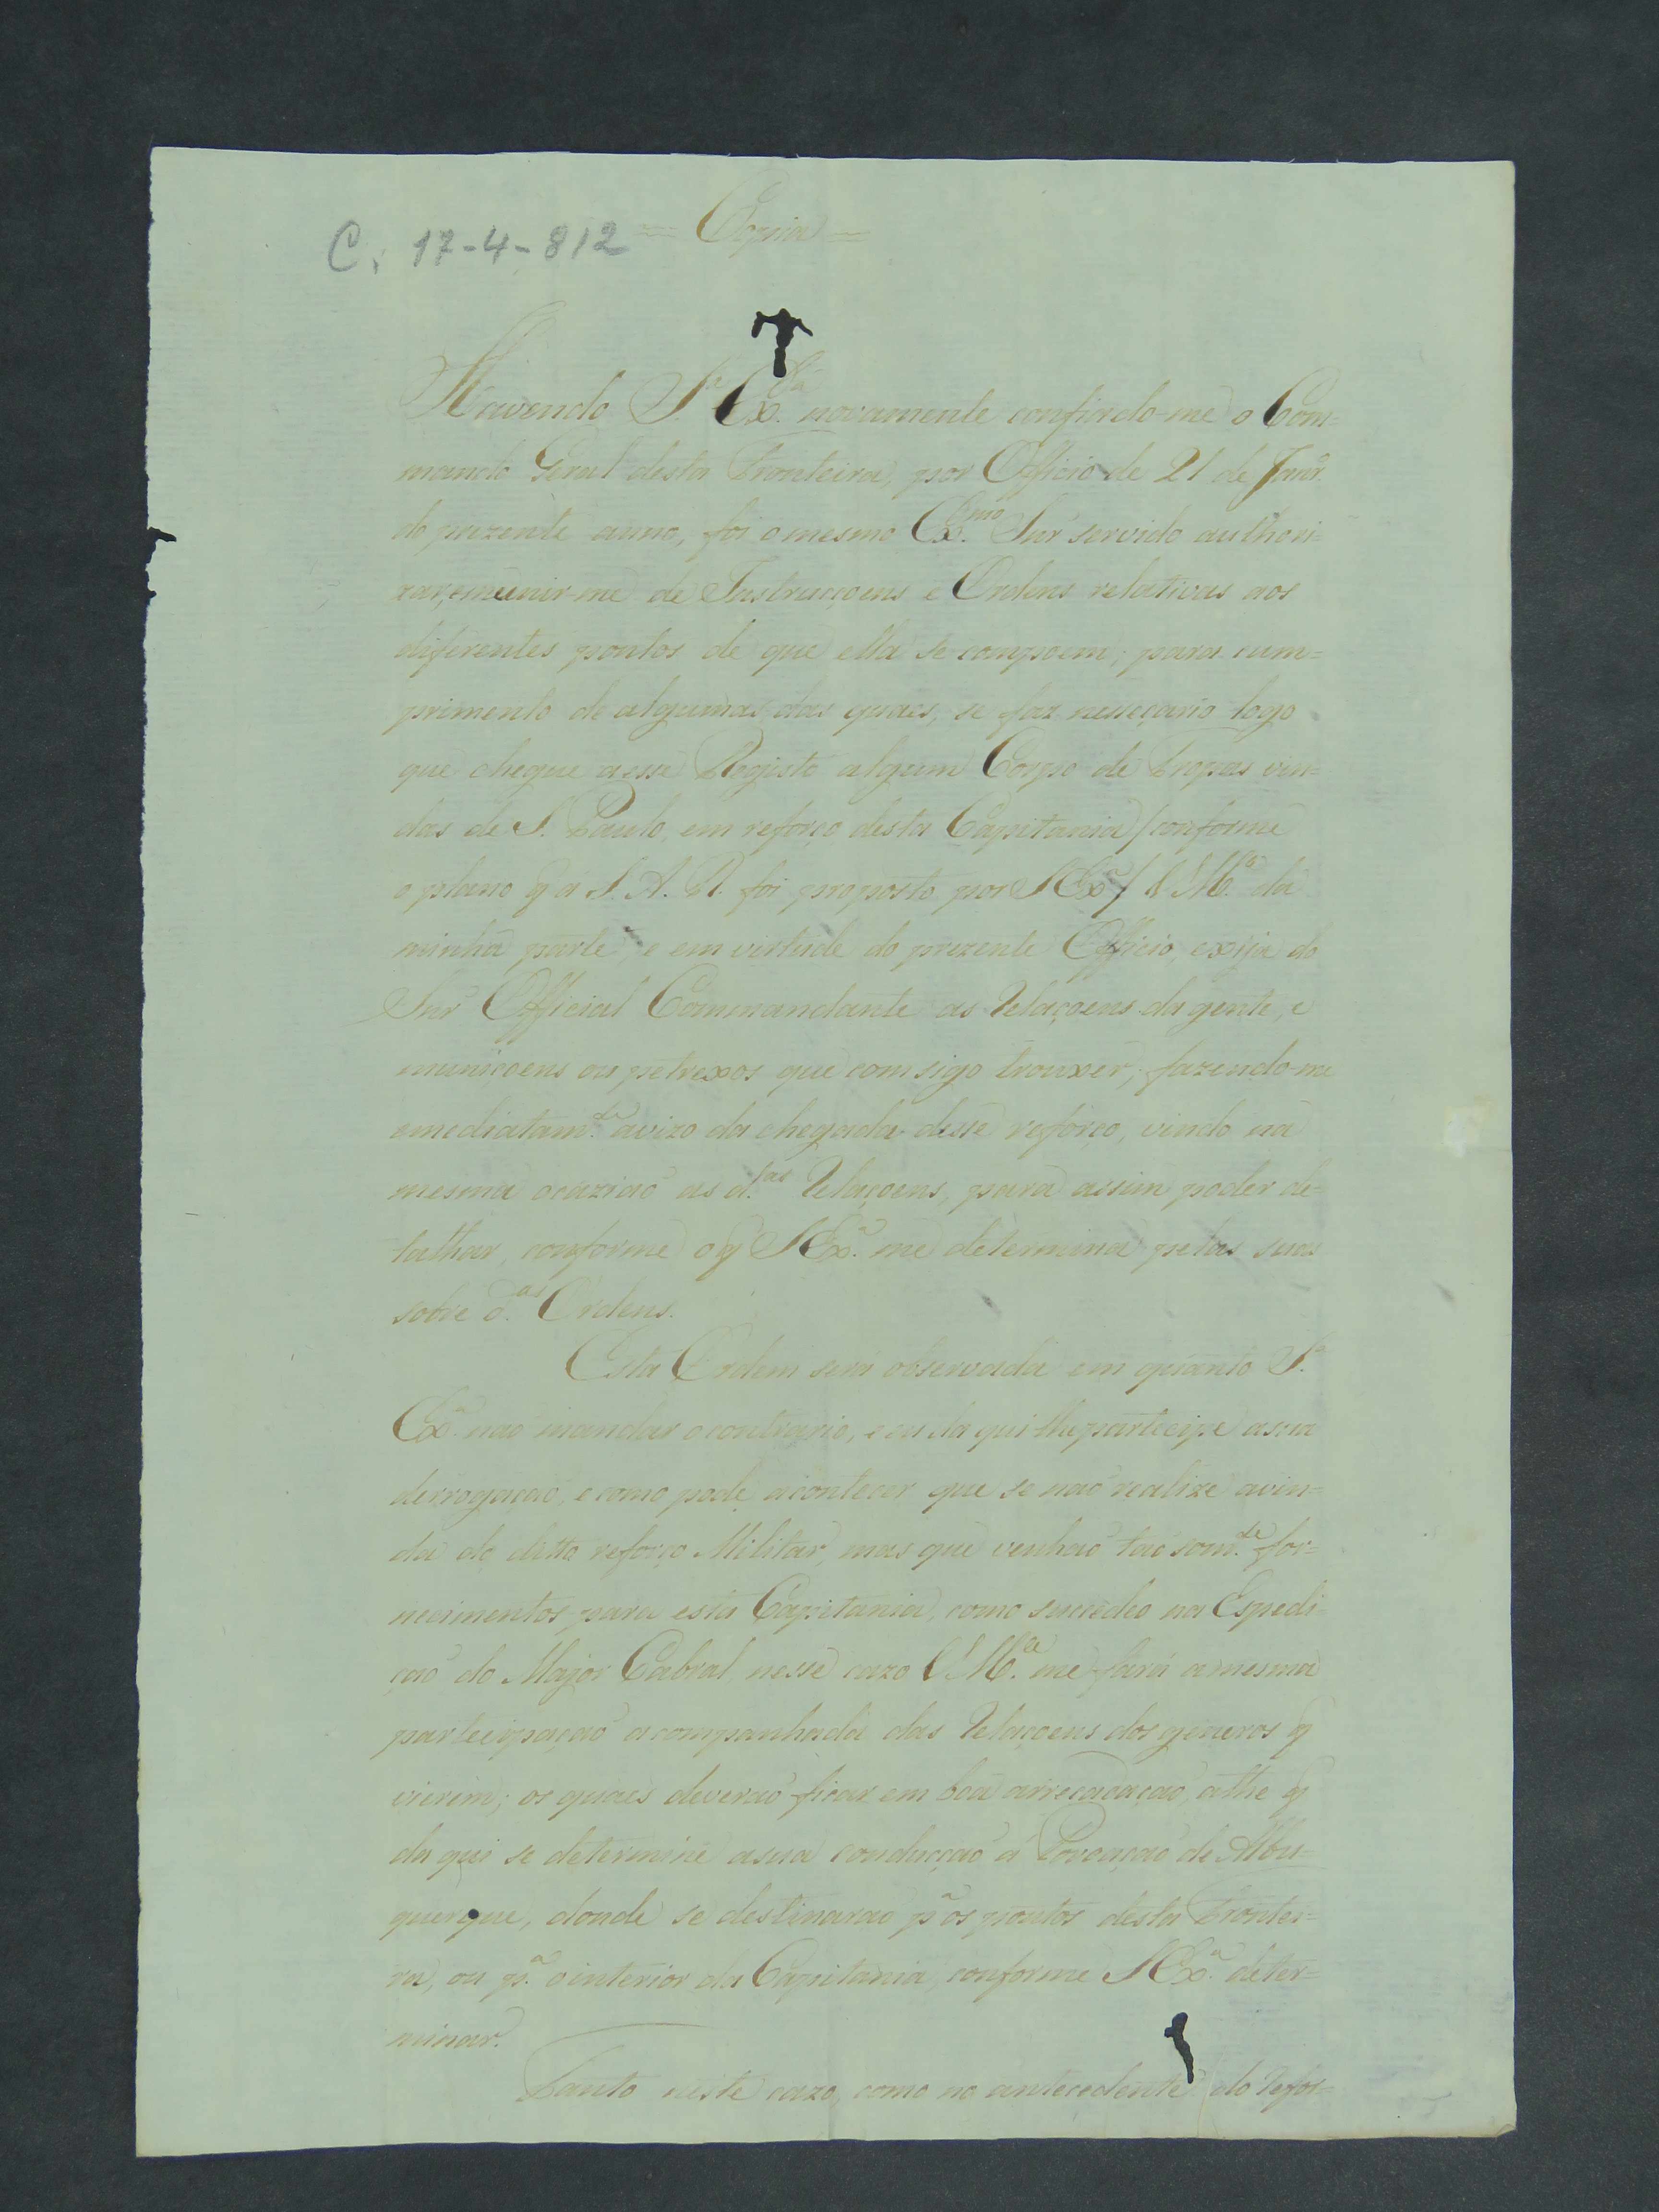 = Copia =
C. 17-4-812
Havendo S.ª Ex.ª novamente confiado-me o Com=
mando Geral desta Fronteira, por Officio de 21 de Janr.º
do prezente anno, foi o mesmo Ex.mo Snr servido authori=
zar, e munir-me de Instrucçoens e Ordens relativas aos
diferentes pontos de que ella se compoem; para cum=
primento de algumas das quaes, se faz nesseçario logo
que chegue a esse Registo algum Corpo de Tropas vin=
das de S. Paulo, em reforço desta Capitania / conforme
o plano q̃ a S. A. R. foi proposto por S Ex.ª / V M.ce da
minha parte, e em virtude do prezente Officio, exija do
Snr Official Commandante as Relaçoens da gente, e
muniçoens ou petrexos que comsigo trouxer; fazendo-me
emediatam.te avizo da chegada desse reforço, vindo na
mesma ocazião as d.tas Relaçoens, para assim poder de=
talhar, conforme o q̃ S Ex.ª me determina pelas suas
sobre d.as Ordens.
Esta Ordem será observada em quanto S.ª
Ex.ª não mandar o contrario, e eu da qui lhe partecipe a sua
derrogação, e como pode acontecer que se não realize a vin=
da do ditto reforço Militar, mas que venhão tão som.te for=
necimentos para esta Capitania, como succedeo na Espedi=
ção do Major Cabral, nesse cazo V M.ce me fará a mesma
partecipação acompanhada das Relaçoens dos generos q̃
vierem; os quaes deverão ficar em boa arrecadação, athe q̃
da qui se determine a sua conducção á Povoação de Albu=
querque, donde se destinarão p.ª os pontos desta Frontei=
ra, ou p.ª o interior da Capitania, conforme S Ex.ª deter=
minar.
Tanto neste cazo, como no antecedente / do Refor=